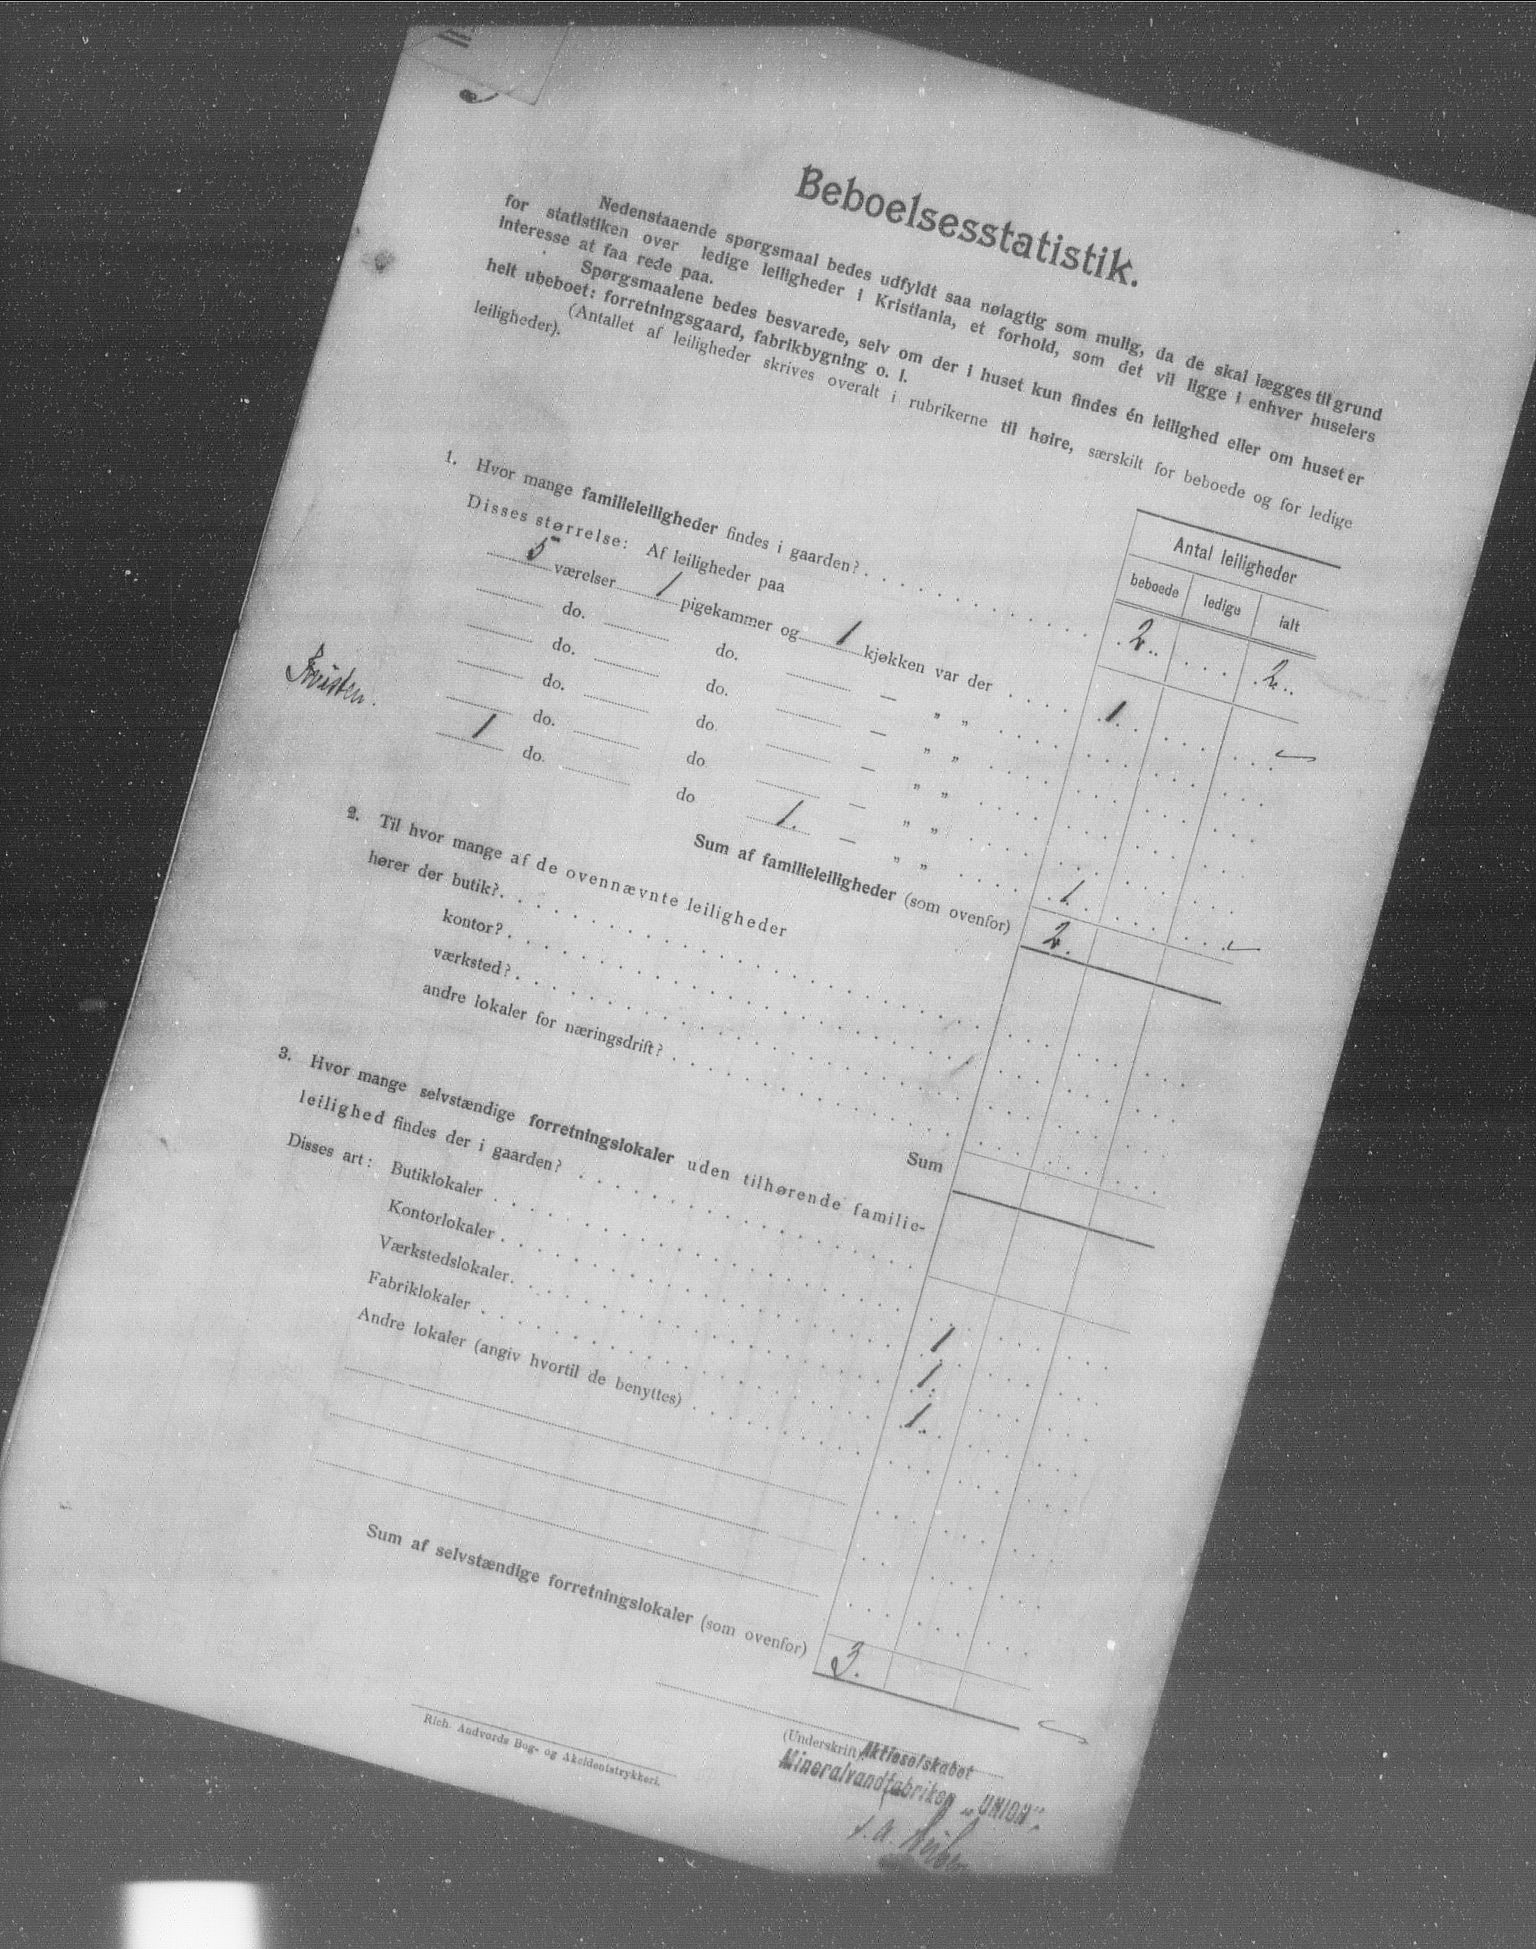 Beboelsesstatistik.
Nedenstaaende spørgsmaal bedes udfyldt saa nølagtig som mulig, da de skal lægges til grund
for statistiken over ledige leiligheder i Kristiania, et forhold, som det vil ligge i enhver huseiers
interesse at faa rede paa.
Spørgsmaalene bedes besvarede, selv om der i huset kun findes én leilighed eller om huset er
helt ubeboet: forretningsgaard, fabrikbygning o. l.
(Antallet af leiligheder skrives overalt i rubrikerne til høire, særskilt for beboede og for ledige
leiligheder).
Antal leiligheder
beboede ledige ialt
1. Hvor mange familieleiligheder findes i gaarden? 2 2
Disses størrelse: Af leiligheder paa
5 værelser 1 pigekammer og 1 kjøkken var der 1
do. do. — " "
do. do. — " "
do. do. — " "
do. do. — " "
1 do. do 1. — " " 1
Sum af familieleiligheder (som ovenfor) 2.
2. Til hvor mange af de ovennævnte leiligheder
hører der butik?
kontor?
værksted?
andre lokaler for næringsdrift?
Sum
3. Hvor mange selvstændige forretningslokaler uden tilhørende familie-
leilighed findes der i gaarden?
Disses art: Butiklokaler
Kontorlokaler 1
Værkstedslokaler 1.
Fabriklokaler 1.
Andre lokaler (angiv hvortil de benyttes)
Sum af selvstændige forretningslokaler (som ovenfor) 3.
(Underskrift) Aktieselskabet
Mineralvandfabriken „UNION".
Rich. Andvords Bog- og Akcidentstrykkeri.